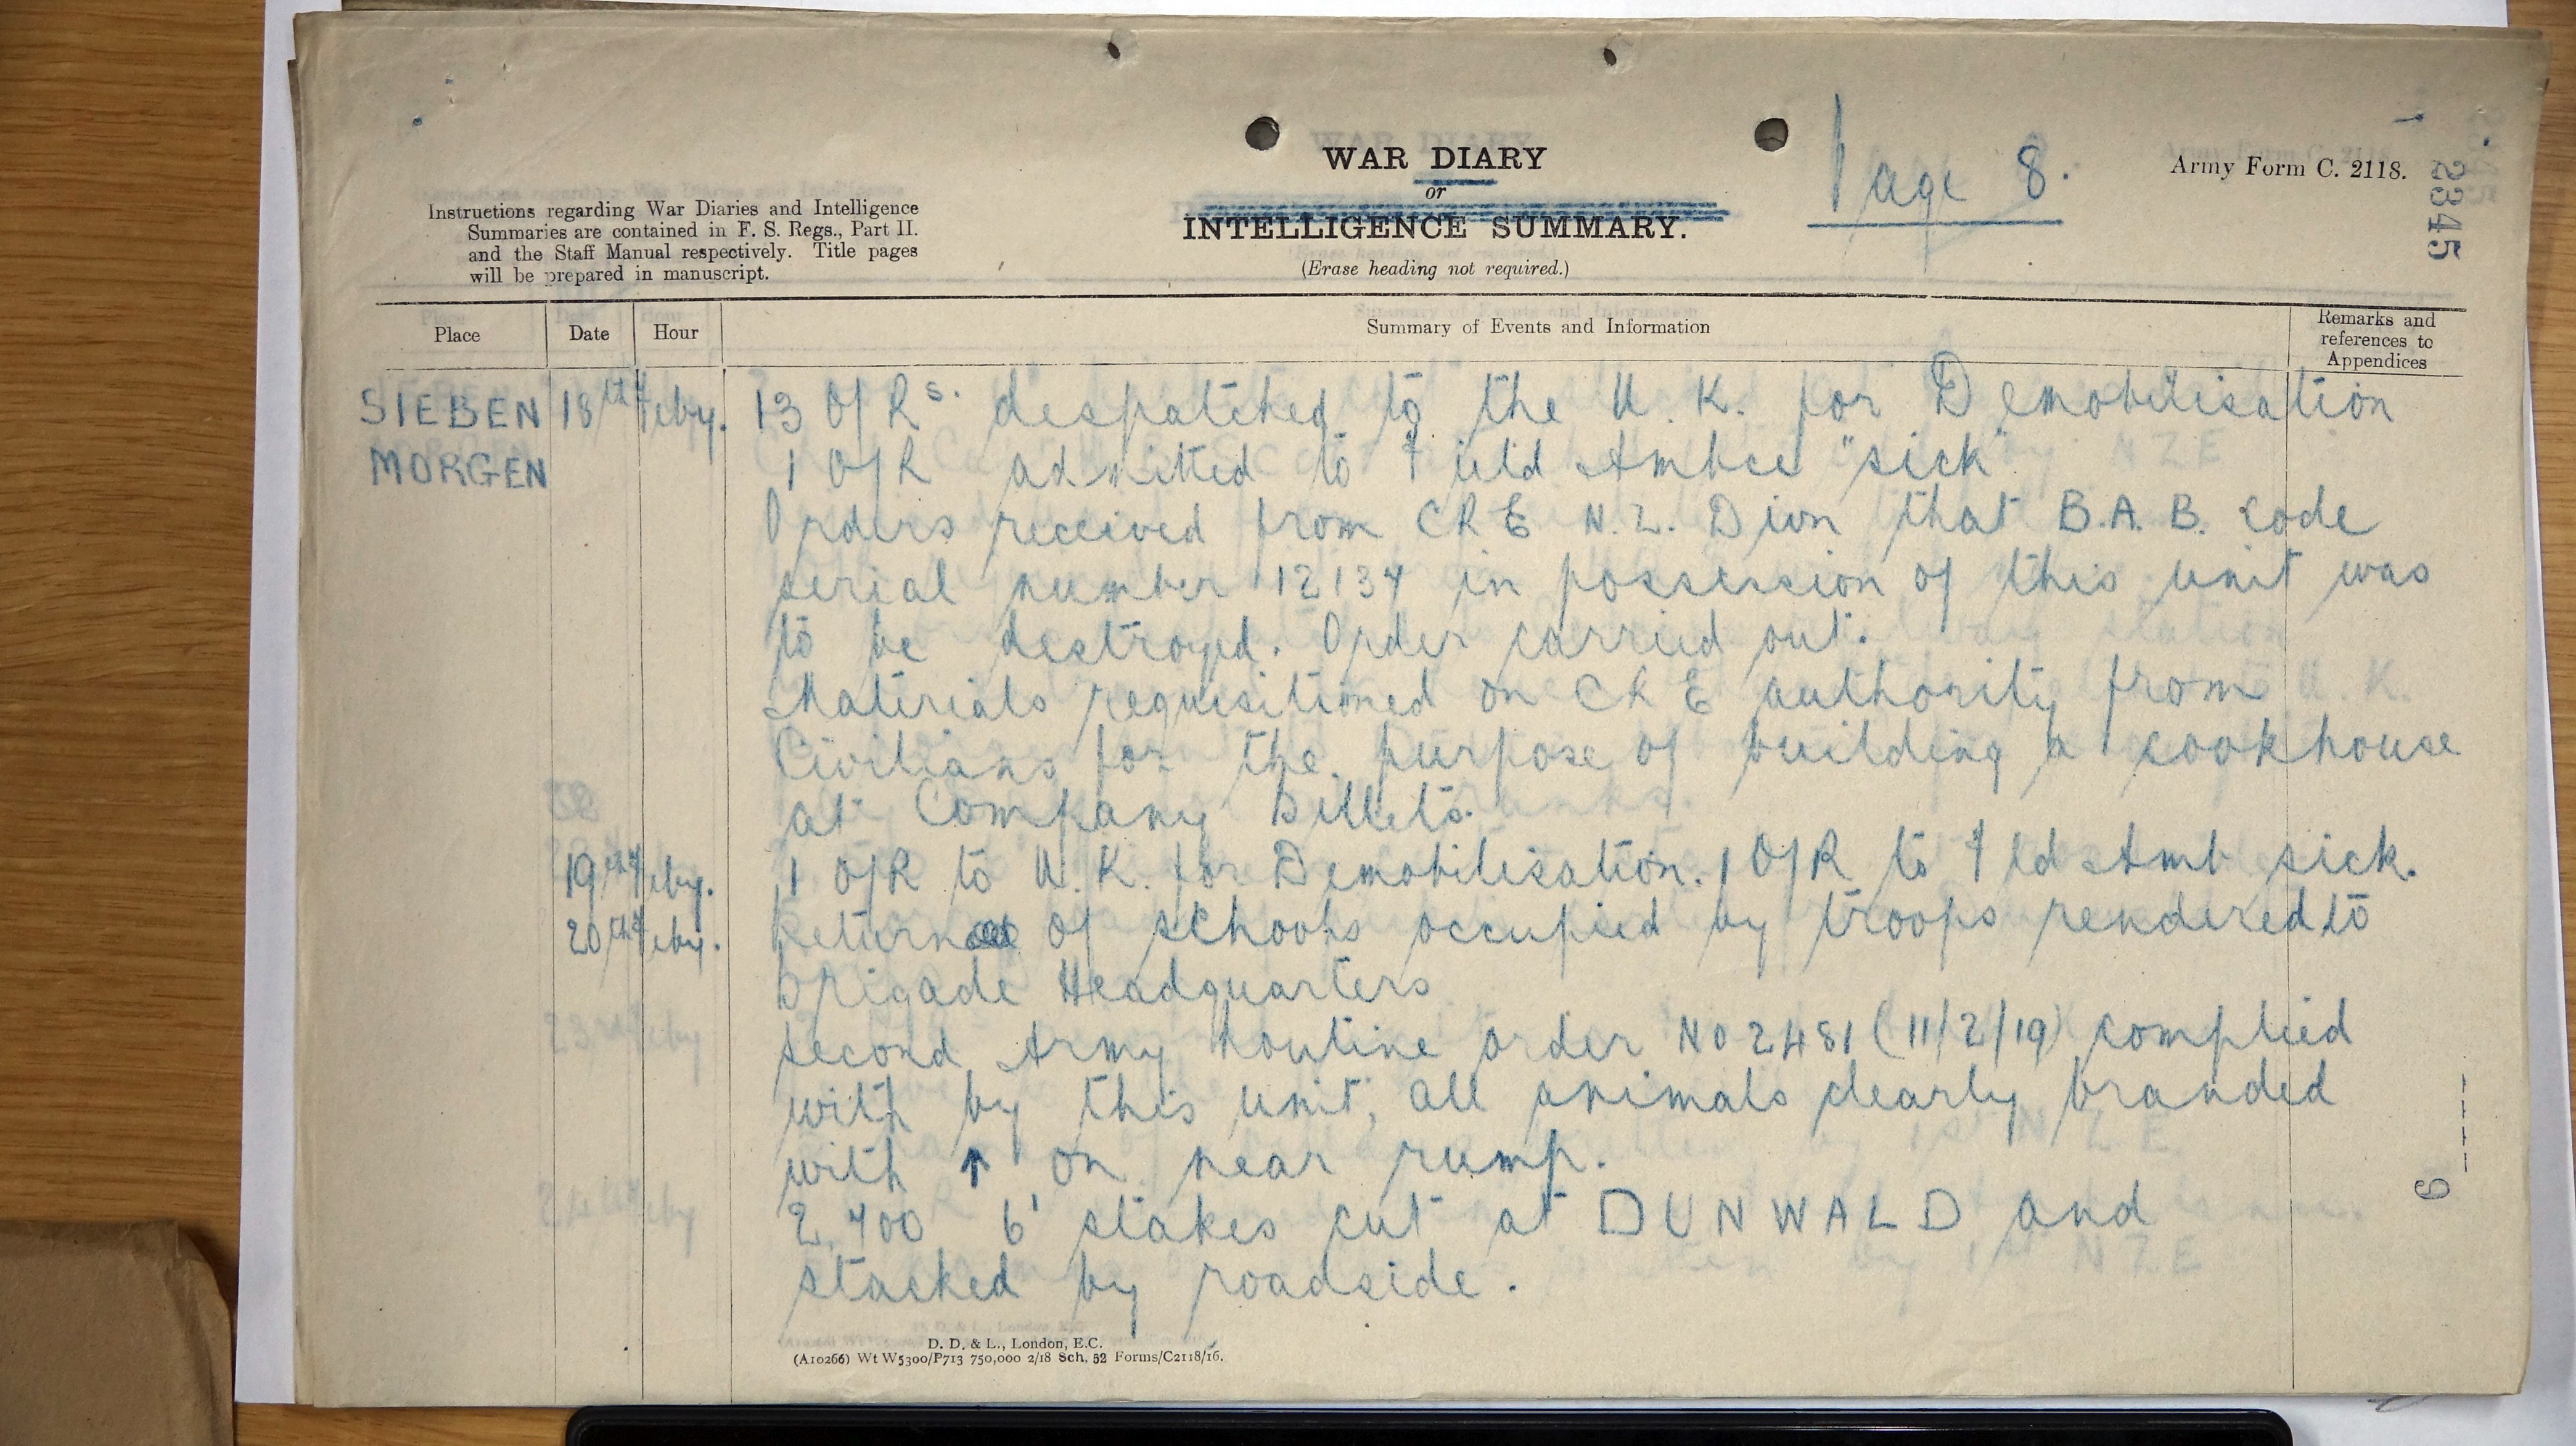 WAR DIARY
or
INTELLIGENCE SUMMARY.
(Erase heading not required.)
Page 8.
Army Form C. 2118.
2345
Instructions regarding War Diaries and Intelligence
Summaries are contained in F. S. Regs., Part II.
and the Staff Manual respectively. Title pages
will be prepared in manuscript.
Place Date Hour Summary of Events and Information Remarks and
references to
Appendices
SIEBEN 18th Feby. 13 O/Rs. despatched to the U. K. for Demobilisation
MORGEN 1 O/R admitted to Field Ambce "sick"
Orders received from CRE N.Z. Divn that B.A.B. code
serial number 12134 in possession of this unit was
to be destroyed. Order carried out.
Materials requisitioned on CRE authority from
Civilians for the purpose of building a cookhouse
at Company billets.
19th Feby. 1 O/R to U. K. for Demobilisation. 1 O/R to Fld Amb sick.
20th Feby. Return of schools occupied by troops rendered to
Brigade Headquarters
Second Army Routine order No 2481 (11/2/19) complied
with by this unit, all animals clearly branded
with ↑ on near rump.
6' stakes cut at DUNWALD and
stacked by roadside.
9
D. D. & L., London, E.C.
(A10266) Wt W5300/P713 750,000 2/18 Sch. 52 Forms/C2118/16.